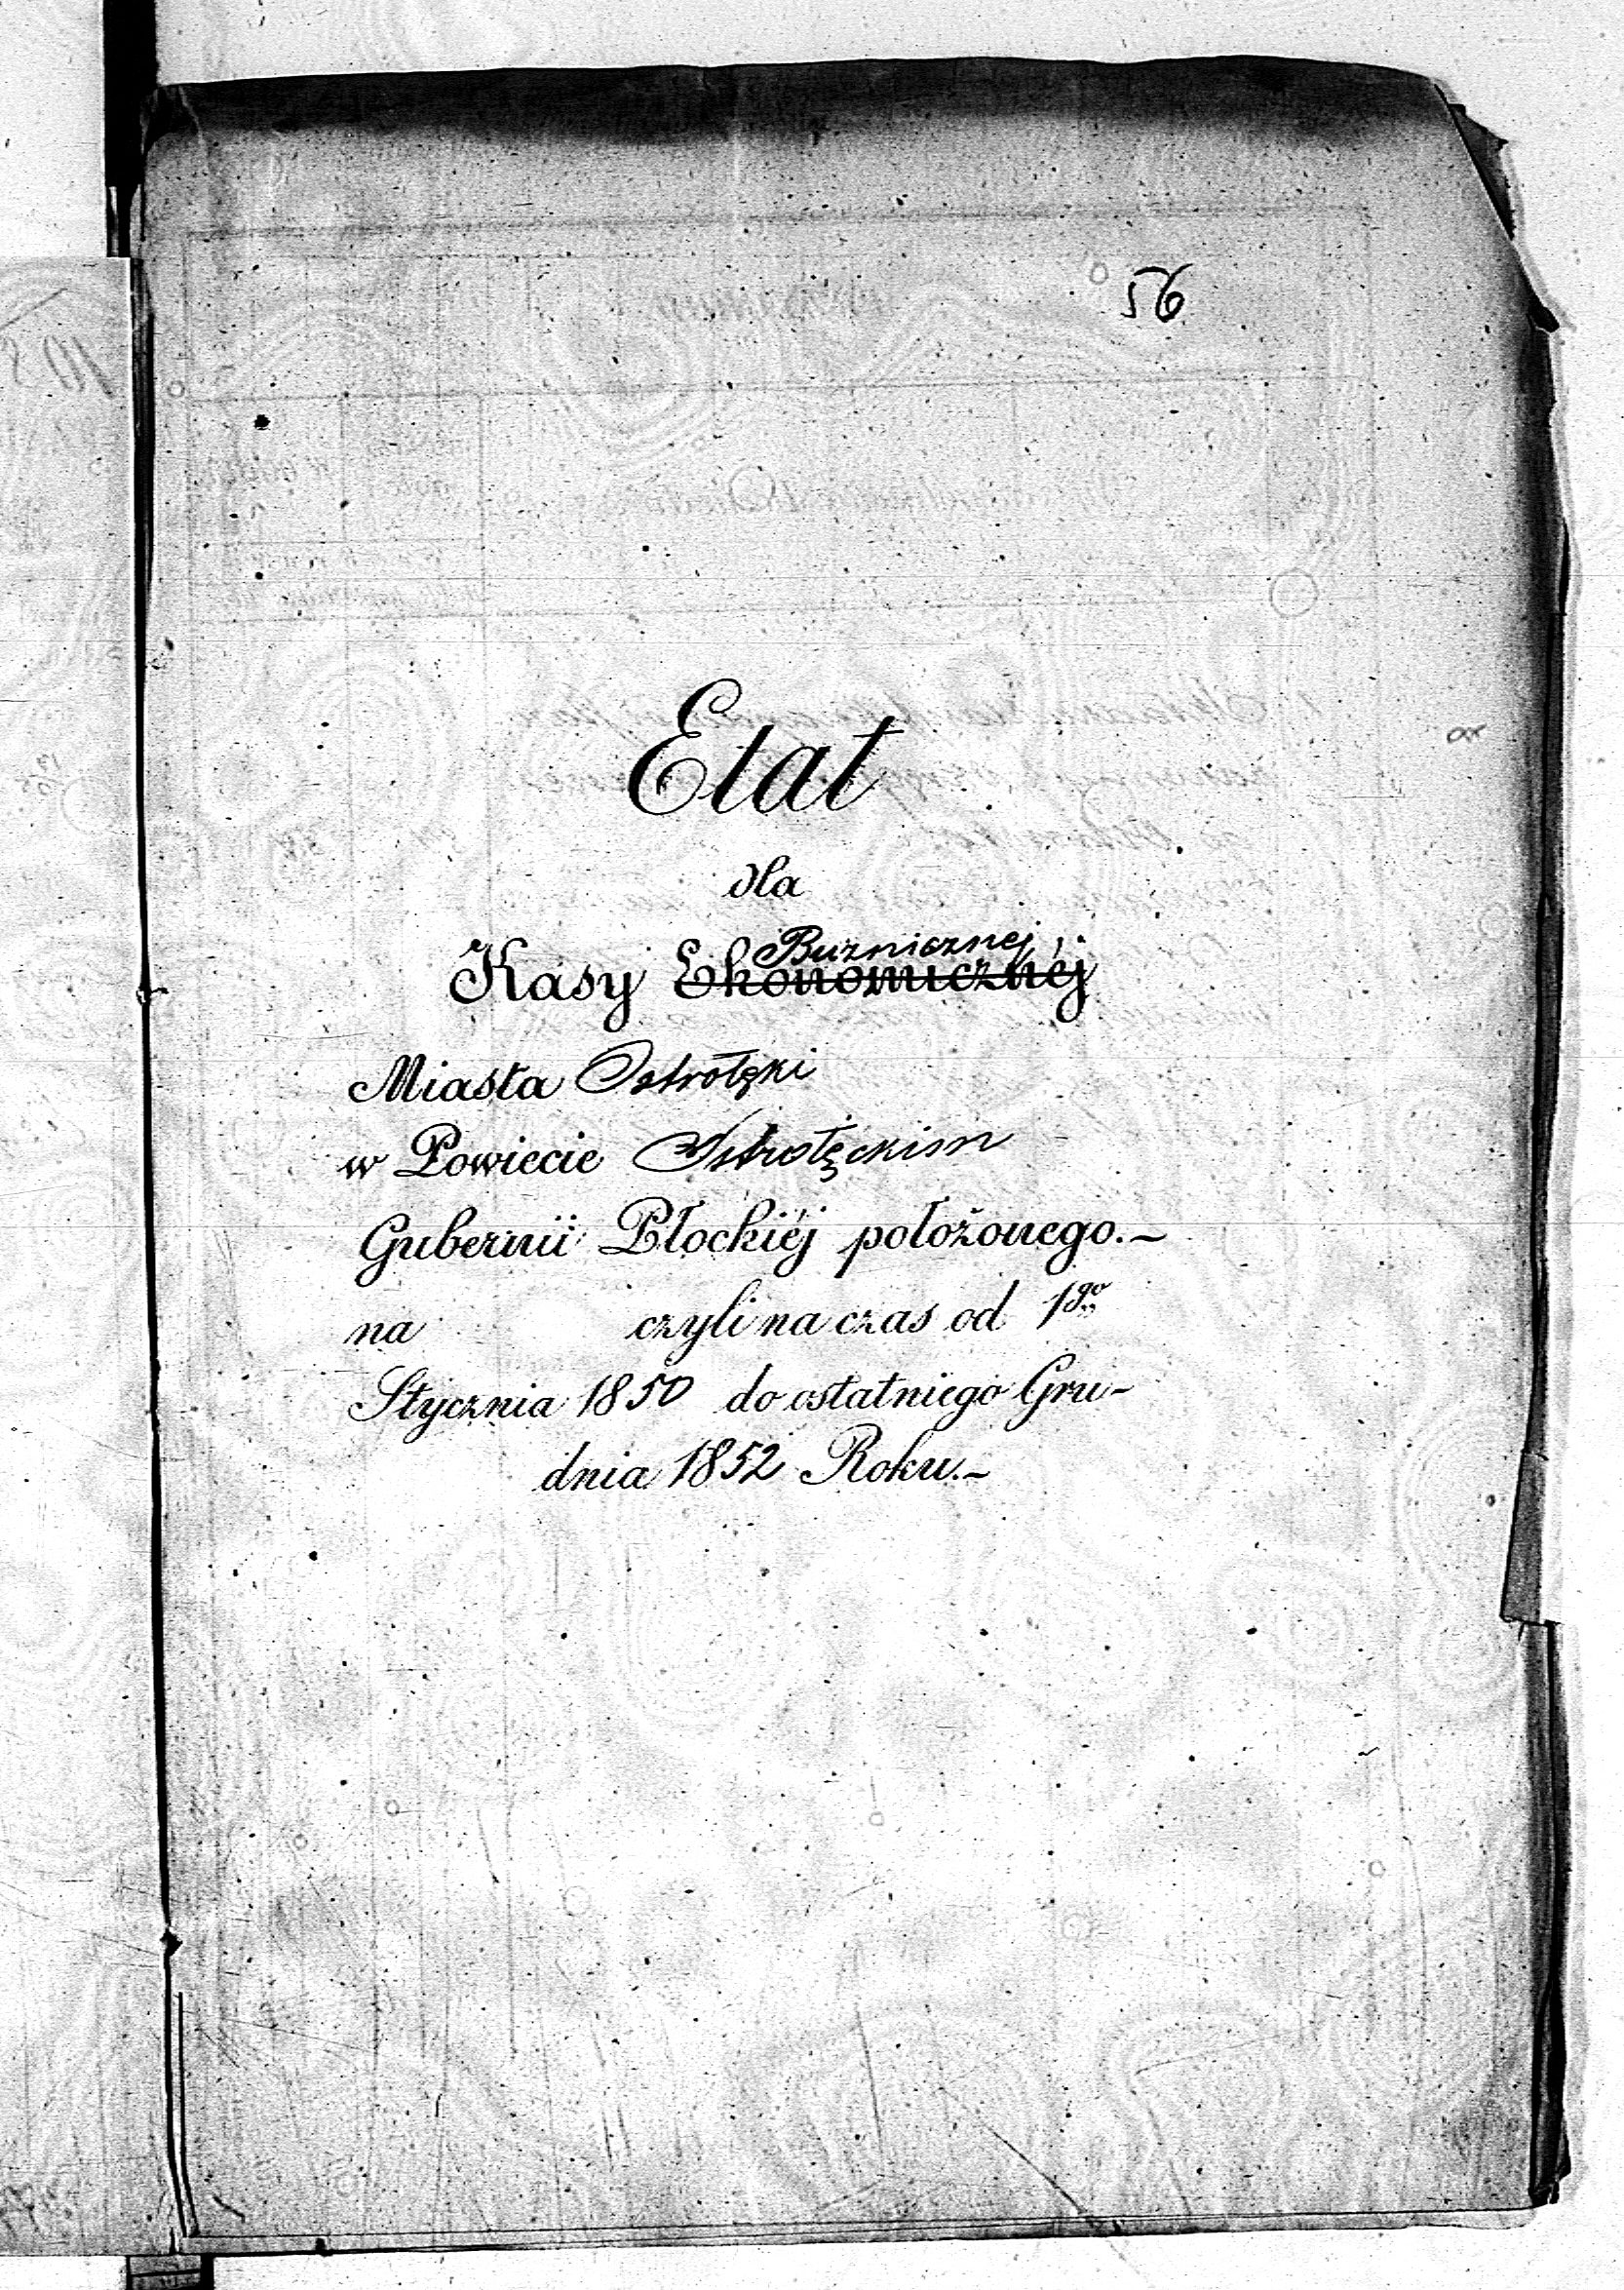 56
Etat
dla
Buzniczney
Kasy Ekonomicznéj
Miasta Ostrołęki
w Powiecie Ostrołęckim
Gubernii Płockiéj położonego.~
na czyli na czas od 1go
Stycznia 1850 do ostatniego Gru-
dnia 1852 Roku.~